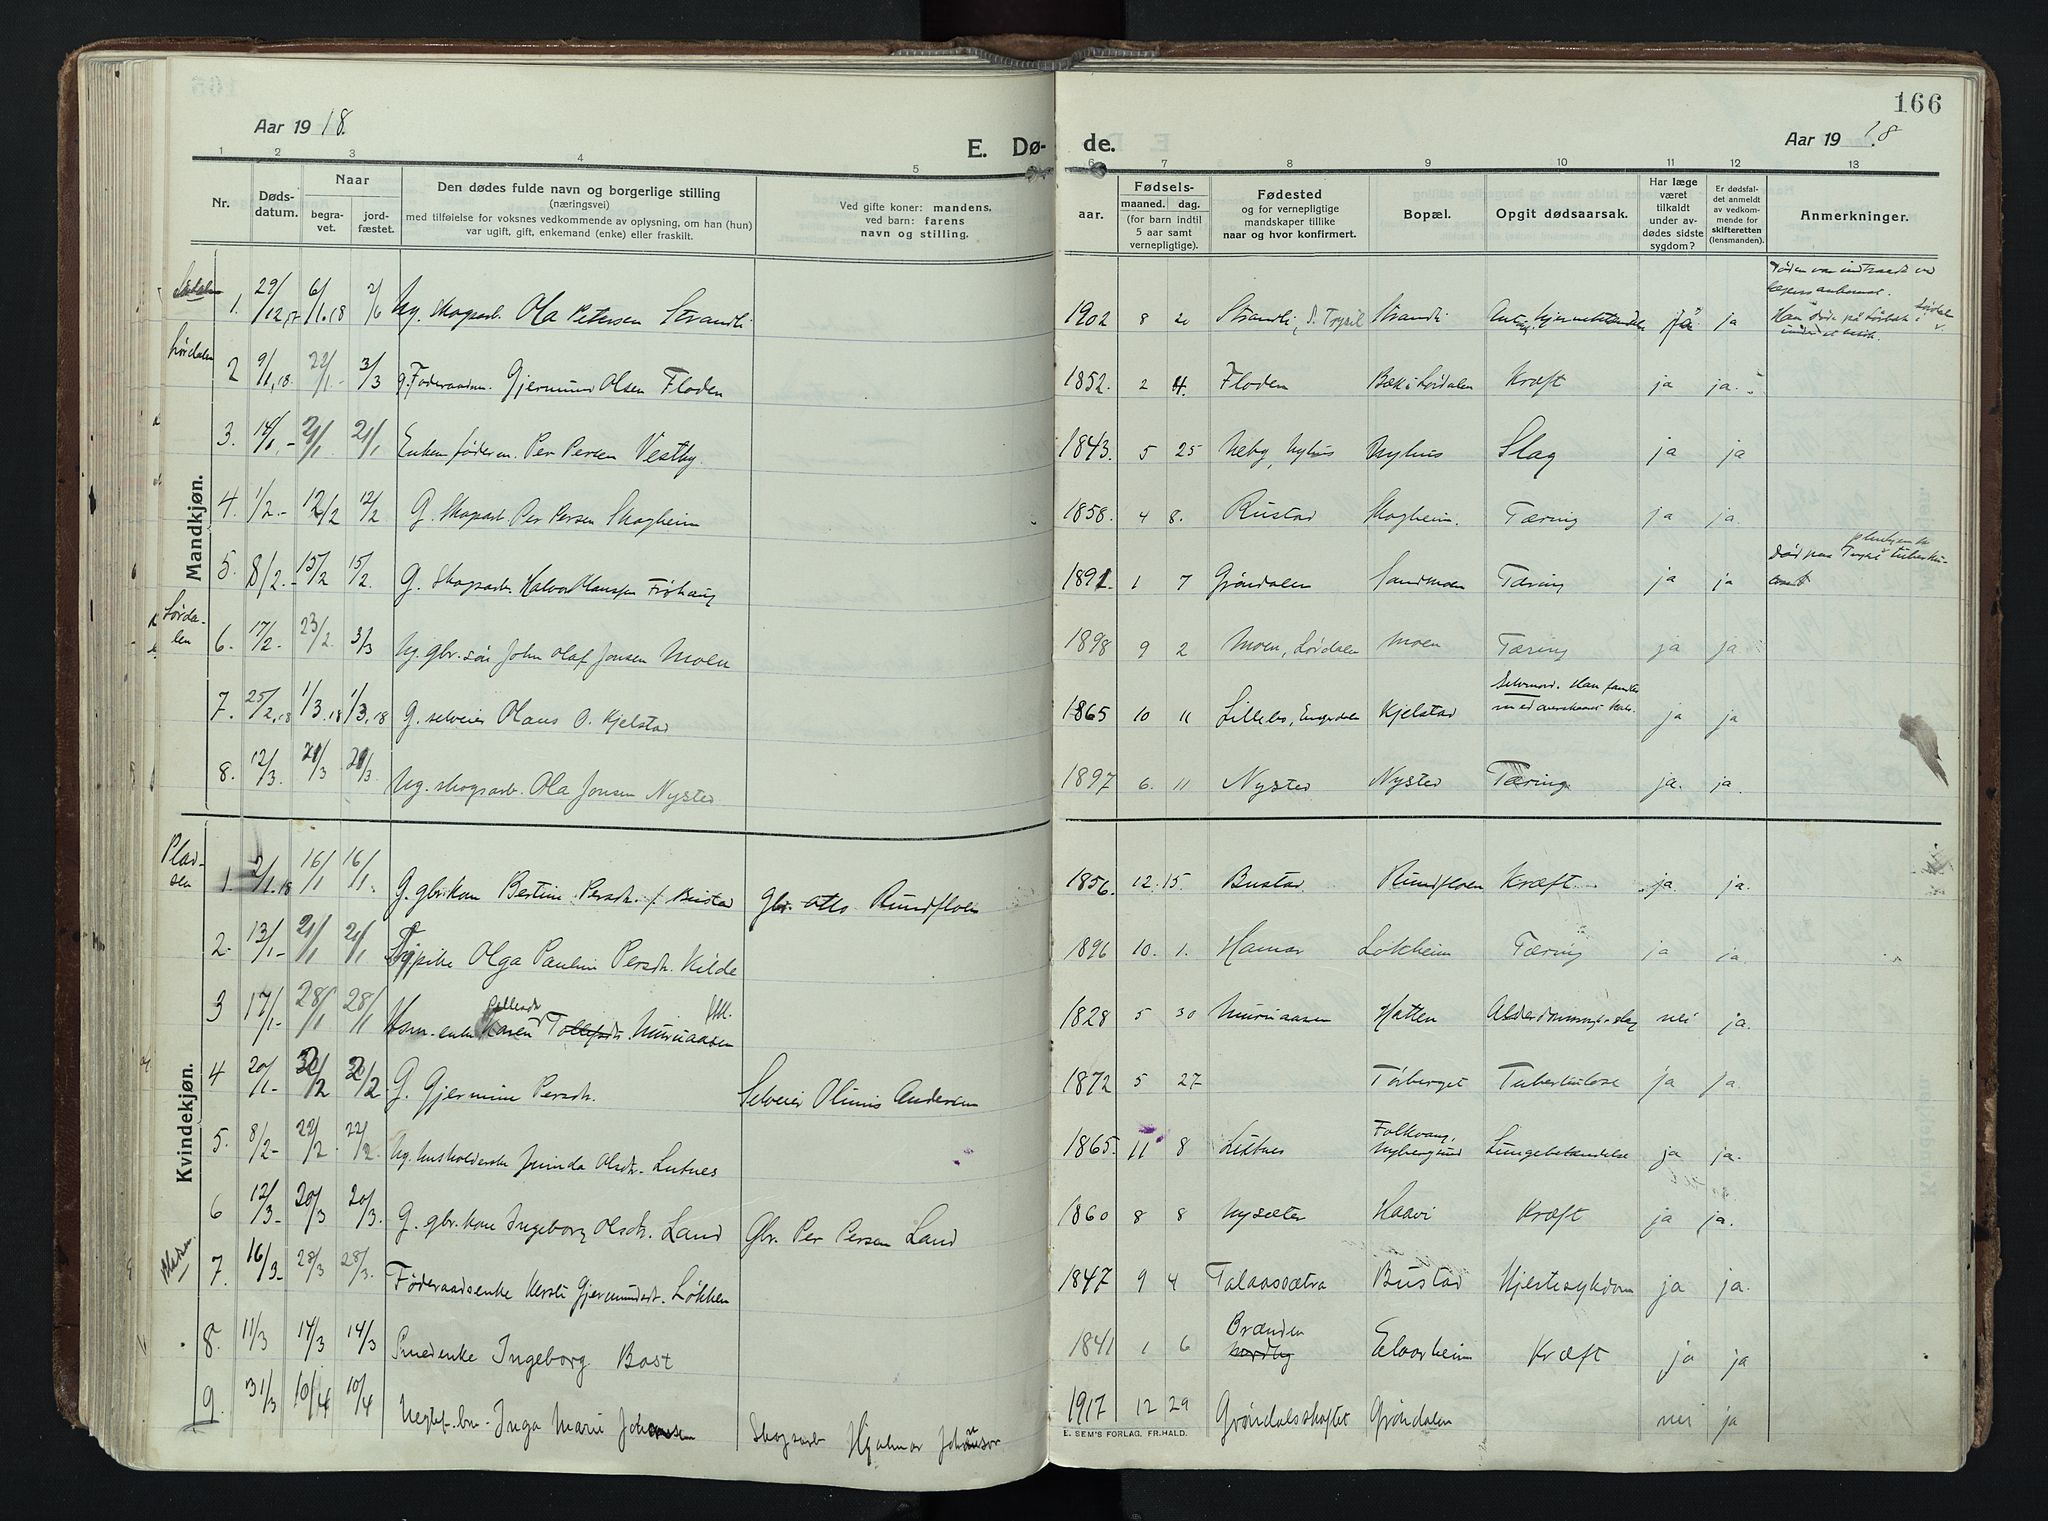 166
Aar 1918.
E. Dø-
de.
Aar 1918
1 2 3 4 5 6 7 8 9 10 11 12 13
Nr.
Døds-
datum.
Naar
begra-
vet.
jord-
fæstet.
Den dødes fulde navn og borgerlige stilling
(næringsvei)
med tilføielse for voksnes vedkommende av oplysning, om han (hun)
var ugift, gift, enkemand (enke) eller fraskilt.
Ved gifte koner: mandens,
ved barn: farens
navn og stilling.
Fødsels-
aar. maaned. dag.
(for barn indtil
5 aar samt
vernepligtige).
Fødested
og for vernepligtige
mandskaper tillike
naar og hvor konfirmert.
Bopæl.
Opgit dødsaarsak.
Har læge
været
tilkaldt
under av-
dødes sidste
sygdom?
Er dødsfal-
det anmeldt
av vedkom-
mende for
skifteretten
(lensmanden).
Anmerkninger.
Mandkjøn.
1. 29/12,17 6/1.18 2/6 Ug. skogsarb. Ola Petersen Strandli 1902 8 20 Strandli, S. Trysil Strandli ja ja
Lørdalen
2 9/1,18. 22/1- 3/3 g. Føderaadm. Gjermund Olsen Floden 1852. 2 4. Floden Bæk i Lørdalen Kræft ja ja.
3. 14/1.- 21/1. 21/1 Enkem. føderm. Per Persen Vestby. 1843. 5 25 Neby, Nyhus Nyhus Slag ja ja
4. 1/2.- 12/2 12/2 G. Skogsarb. Per Persen Skogheim 1858. 4 8. Rustad Skogheim. Tæring ja ja.
5. 8/2.- 15/2 15/2. G. Skogsarb. Halvor Hansen Frøhaug 1891. 1 7 Grøndalen Sandmoen Tæring ja ja
Lørda-
len
6. 17/2.- 23/2. 3/3 Ug. gbr. søn John Olaf Jonsen Moen 1898 9 2 Moen, Lørdalen Moen Tæring ja ja
7. 25/2,18 1/3.18 1/3,18 G. selveier Olaus O. Kjelstad 1865 10 11 Lillebo, Engerdalen Kjelstad Selvmord. Han fandtes
med overskaaret Hals. ja ja
8. 12/3. 21/3 21/3. Ug. skogsarb. Ola Jonsen Nysted 1897 6. 11 Nysted Nysted Tæring ja. ja.
Kvindekjøn.
Plad-
sen
1. 2/1.18 16/1 16/1. G. gbr.kone Bertine Persdt. f. Bustad Gbr. Otto Rundfloen 1856. 12. 15. Bustad Rundfloen Kræft ja ja.
2- 13/1- 21/1 21/1 Olga Pauline Persdt. Kilde 1896 10. 1. Hamar Lokheim Tæring ja ja.
3 17/1- 28/1 28/1 Husm. enke Karen Tollefsdt. Muruaasen 1828 5 30 Muruaasen Hatten nei ja.
4 20/1- G. Gjermine Persdt. Selveier Olinus Andersen 1872 5 27 Tørberget Tuberkulose ja ja.
5. 8/2- 22/2. 22/2. Ug. husholderske Olsdt. Lutnes 1865. 11 8 Lutnes Folkvang,
Nybergsund Lungebetændelse ja ja.
6 12/3- 20/3 20/3. G. gbr. kone Ingeborg Olsdt. Land Gbr. Per Persen Land 1860 8 8 Nysæter Haavi Kræft ja ja.
7. 16/3- 28/3 28/3. Føderaadsenke Kersti Gjermundsdt. Løkken 1847 9 4 Talaassætra Bustad Hjertesykdom ja ja.
8. 11/3 14/3 14/3 Smedenke Ingeborg Bast 1841 1 6 Brænden
Nordby Elvarheim Kræft ja ja
9. 31/3 10/4 10/4 Inga Marie Johansen Skogsarb Hjalmar Johansen 1917 12 29 Grøndalsskaftet Grøndalen nei ja
E. SEM'S FORLAG, FR.HALD.